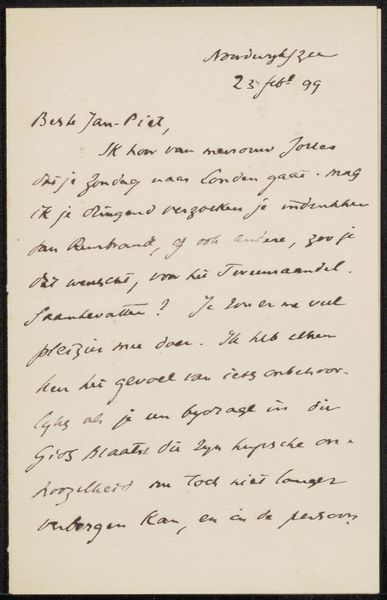 Noordwijk/zee
23 febr. 99
Beste Jan-Piet,
Ik hoor van mevrouw Jolles
dat je Zondag naar Londen gaat. mag
ik je dringend verzoeken je indrukken
van Rembrandt, of ook andere, zoo je
dit wenscht, voor het Tweemaandel.
saamtevatten? Je zou er me veel
pleizier mee doen. Ik heb
het gevoel van iets onbehoor-
lijks als je een bijdrage in die
Gids plaatst die zijn on-
noozelheid nu toch niet langer
verbergen kan, en in de persoon